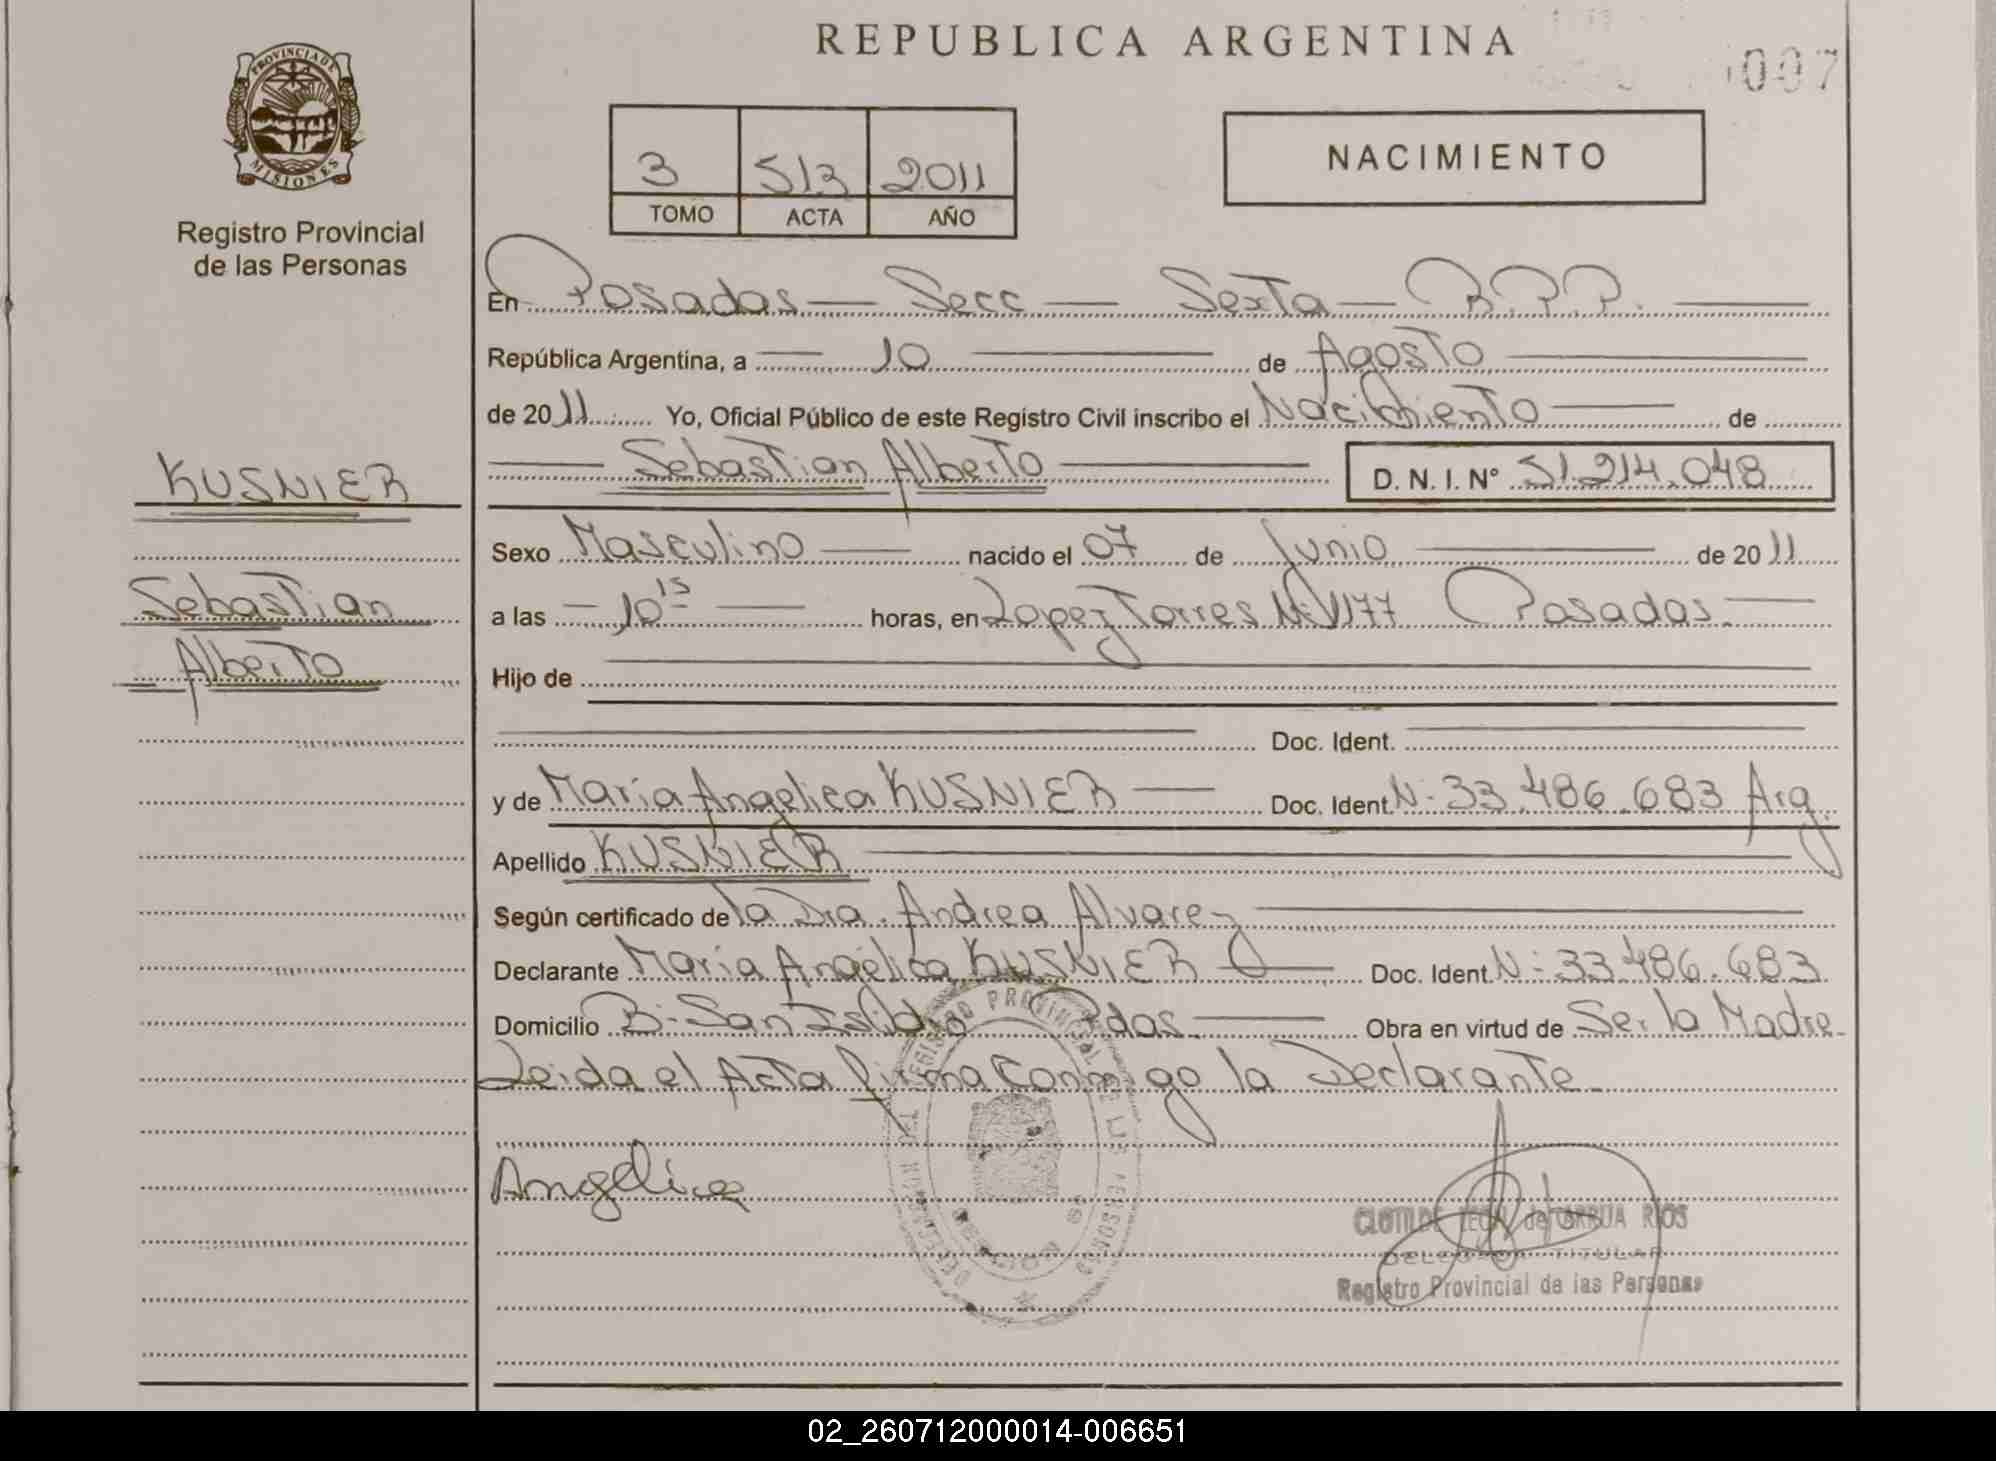 REPUBLICA ARGENTINA
007
PROVINCIA DE
MISIONES
Registro Provincial
de las Personas
3 513 2011
TOMO ACTA AÑO
NACIMIENTO
En Posadas Secc Sexta R.P.P.
República Argentina, a 10 de Agosto
de 2011 Yo, Oficial Público de este Registro Civil inscribo el Nacimiento de
Sebastian Alberto D. N. I. Nº 51.214.048
KUSNIER
Sexo Masculino nacido el 07 de Junio de 2011
Sebastian
a las 10 15 horas, en Lopez Torres Nº 1177 Posadas
Alberto
Hijo de
Doc. Ident.
y de Maria Angelica KUSNIER Doc. Ident. Nº 33.486.683 Arg.
Apellido KUSNIER
Según certificado de la Dra. Andrea Alvarez
Declarante Maria Angélica KUSNIER Doc. Ident. Nº 33.486.683
Domicilio Bº San Isidro Pdas Obra en virtud de Ser la Madre
Leida el Acta firma conmigo la Declarante
Angelica
CLOTILDE de ARRUA RIOS
TITULAR
Registro Provincial de las Personas
02_260712000014-006651